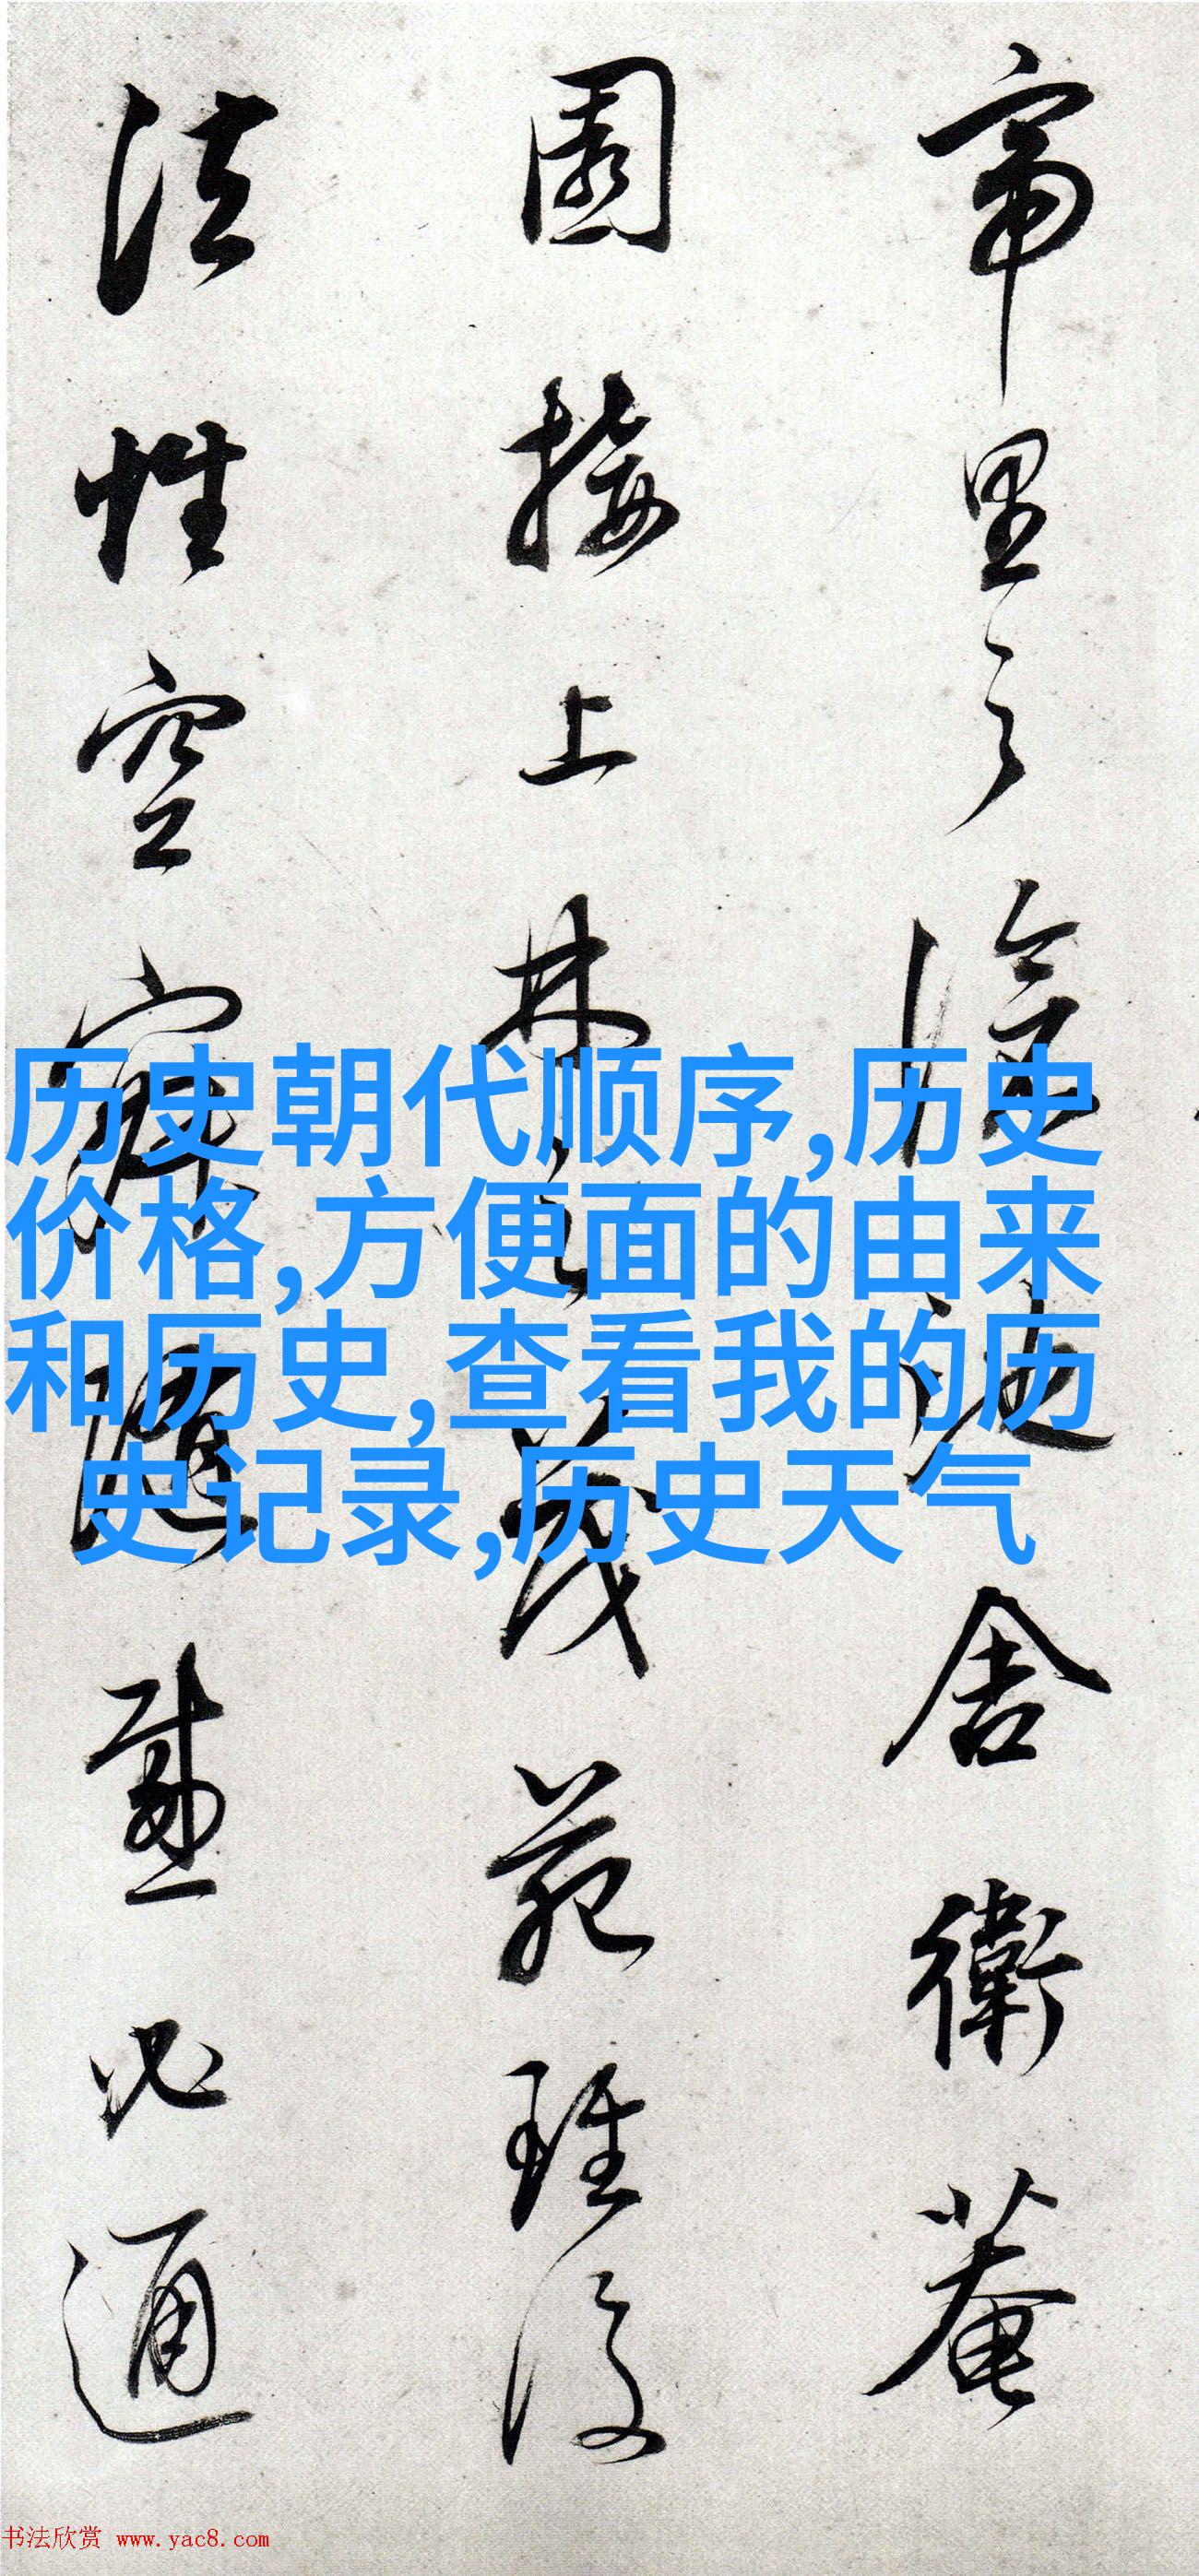 帝里之阴地舍卫菴
园接上林之茂苑
法性空寂随感必通
历史朝代顺序,历史
价格,方便面的由来
和历史,查看我的历
史记录,历史天气
书法欣赏 www.yac8.com